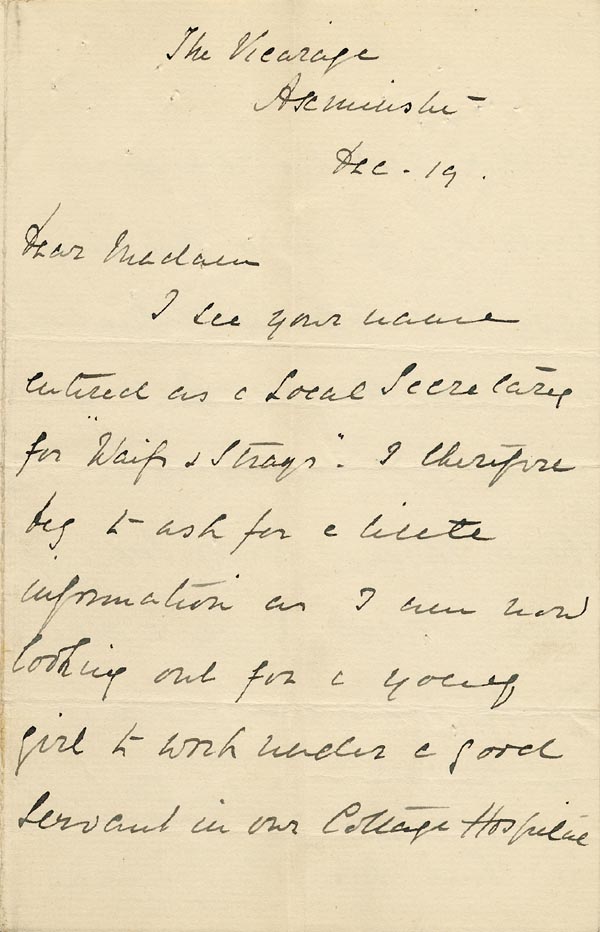 The Vicarage
Axminster
Dec - 19.
Dear Madam
I see your name
entered as a Local Secretary
for "Waifs & Strays". I therefore
beg to ask for a little
information as I am now
looking out for a young
girl to work under a good
servant in our Cottage Hospital